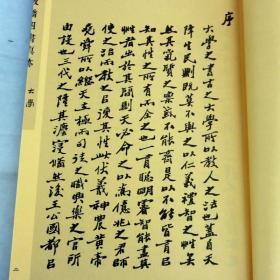 序
大學之書古之大學所以教人之法也蓋自天
降生民則既莫不與之以仁義禮智之性矣
然其氣質之稟或不能齊是以不能皆有以
知其性之所有而全之也一有聰明睿智能盡其
性者出於其間則天必命之以為億兆之君師
使之治而教之以復其性此伏羲神農黃帝
堯舜所以繼天立極而司徒之職典樂之官所
由設也三代之隆其法寖備然後王公國都以
四書真本 大學
二